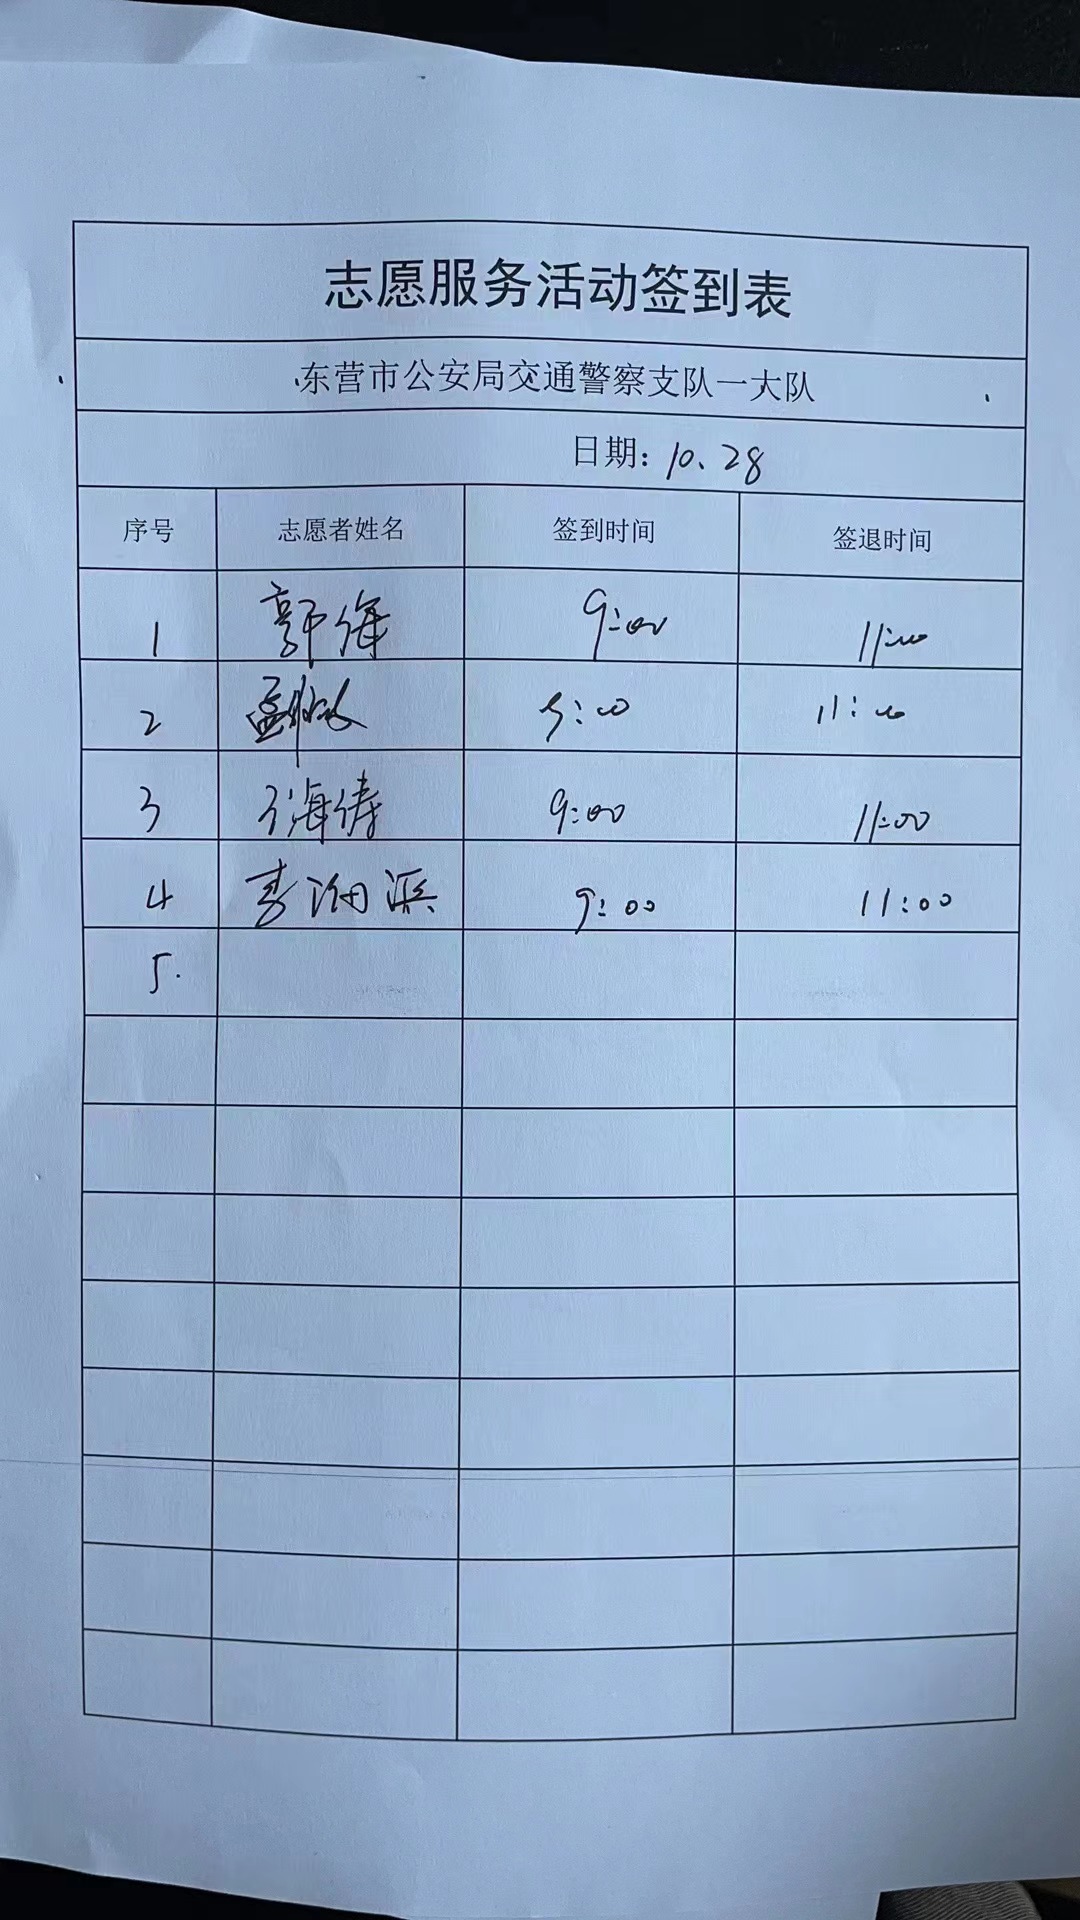 志愿服务活动签到表
东营市公安局交通警察支队一大队
日期: 10.28
序号 志愿者姓名 签到时间 签退时间
1 郭海 9:00 11:00
2 9:00 11:00
3 海涛 9:00 11:00
4 李 滨 9:00 11:00
5.